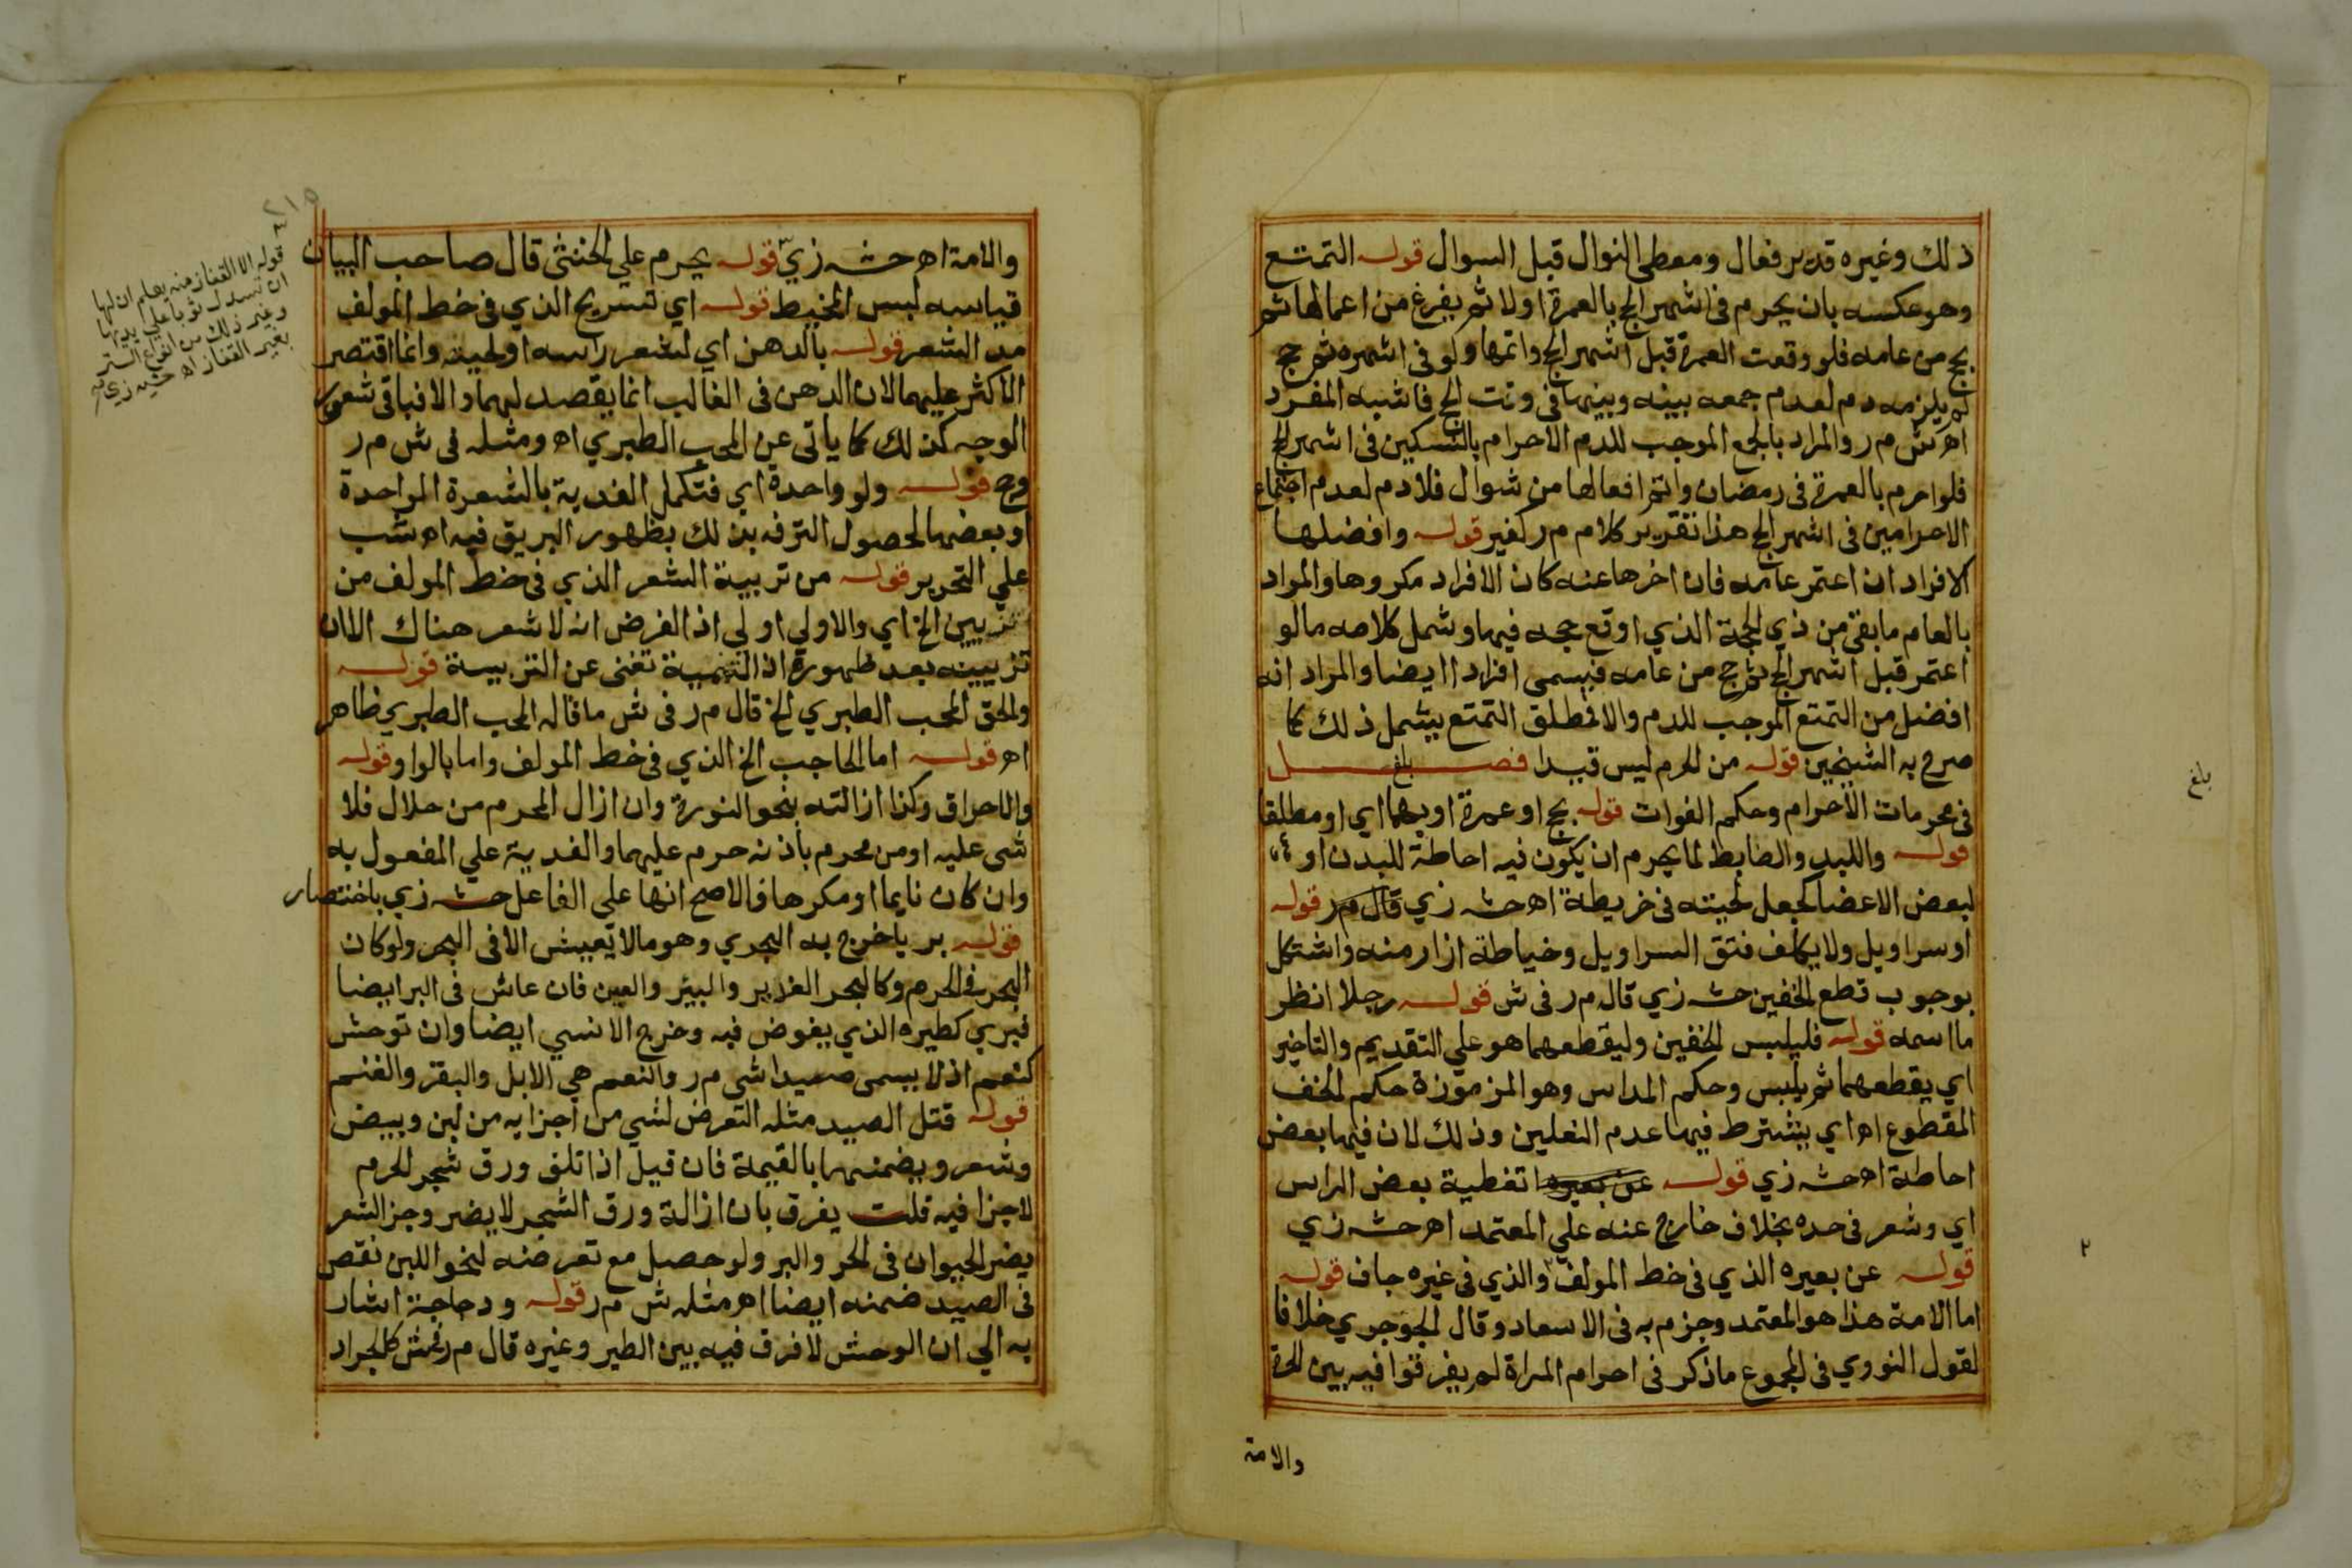 ذلك وغيره قدير فعال ومعطي النوال قبل السوال قوله التمتع
وهو عكسه بان يحرم فى اشهر الحج بالعمرة اولا ثم يفرغ من اعمالها ثم
يحج من عامه فلو وقعت العمرة قبل اشهر الحج واتمها ولو فى اشهره ثم حج
لم يلزمه دم لعدم جمعه بينه وبينها فى وقت الحج فاشبه المفرد
اهـ ش م ر والمراد بالجمع الموجب للدم الاحرام بالنسكين فى اشهر الحج
فلو احرم بالعمرة فى رمضان واتم افعالها من شوال فلا دم لعدم اجتماع
الاحرامين فى اشهر الحج هذا تقرير كلام م ر كغير قوله وافضلها
الافراد ان اعتمر عامه فان اخرها عنه كان الافراد مكروها والمراد
بالعام ما بقى من ذي الحجة الذي اوقع حجه فيها وشمل كلامه ما لو
اعتمر قبل اشهر الحج ثم حج من عامه فيسمى افرادا ايضا والمراد انه
افضل من التمتع الموجب للدم والا فمطلق التمتع يشمل ذلك كما
صرح به الشيخين قوله من الحرم ليس قيدا فصل بلغ
فى محرمات الاحرام وحكم الفوات قوله بحج او عمرة او بهما اي او مطلقا
قوله واللبد والضابط لما يحرم ان يكون فيه احاطة للبدن او
لبعض الاعضا كجعل لحيته فى خريطة اهـ حشـ زي قال م ر قوله
او سراويل ولا يكلف فتق السراويل وخياطة ازار منه واشتكل
بوجوب قطع الخفين حشـ زي قاله م ر فى ش قوله رجلا انظر
ما اسمه قوله فليلبس الخفين وليقطعهما هو علي التقديم والتاخير
اي يقطعهما ثم يلبس وحكم المداس وهو المزموزة حكم الخف
المقطوع اهـ اي يشترط فيها عدم النعلين وذلك لان فيها بعض
احاطة اهـ حشـ زي قوله عن بعيره تغطية بعض الراس
اي وشعر فى حده بخلاف خارج عنه علي المعتمد اهـ حشـ زي
قوله عن بعيره الذي فى خط المولف والذي فى غيره جاف قوله
اما الامة هذا هو المعتمد وجزم به فى الاسعاد وقال الجوجري خلافا
لقول النووي فى المجموع ما ذكر فى احرام المراة لم يفرقوا فيه بين الحرة
والامة
بلغ
والامة اهـ حشـ زي قوله يحرم علي الخنثى قال صاحب البيان
قياسه لبس المخيط قوله اي تسريح الذي فى خط المولف
مد الشعر قوله بالدهن اي لشعر راسه او لحيته وانما اقتصر
الاكثر عليهما لان الدهن فى الغالب انما يقصد لهما والا فباقى شعور
الوجه كذلك كما ياتى عن المحب الطبري اهـ ومثله فى ش م ر
وح قوله ولو واحدة اي فتكمل الفدية بالشعرة الواحدة
او بعضها لحصول الترفه بذلك بظهور البريق فيه اهـ شب
علي التحرير قوله من تربية الشعر الذي فى خط المولف من
تزيين الخ اي والاولي اولي اذ الفرض انه لا شعر هناك الا ان
تزيينه بعد ظهوره اذ التنمية تغنى عن التربية قوله
والحق المحب الطبري الخ قال م ر فى ش ما قاله المحب الطبري ظاهر
اهـ قوله اما الحاجب الخ الذي فى خط المولف واما بالواو قوله
والاحراق وكذا ازالته بنحو النورة وان ازال المحرم من حلال فلا
شى عليه او من محرم باذنه حرم عليهما والفدية علي المفعول به
وان كان نايما او مكرها فالاصح انها علي الفاعل حشـ زي باختصار
قوله بريا خرج به البحري وهو ما لا يعيش الا فى البحر ولو كان
البحر فى الحرم وكالبحر الغدير والبير والعين فان عاش فى البر ايضا
فبري كطيره الذي يغوض فيه وخرج الانسي ايضا وان توحش
كنعم اذ لا يسمى صيدا شى م ر والنعم هي الابل والبقر والغنم
قوله قتل الصيد مثله التعرض لشي من اجزايه من لبن وبيض
وشعر ويضمنها بالقيمة فان قيل اذا تلف ورق شجر الحرم
لا جزا فيه قلت يفرق بان ازالة ورق الشجر لا يضر وجز الشعر
يضر الحيوان فى الحر والبر ولو حصل مع تعرضه لنحو اللبن نقص
فى الصيد ضمنه ايضا اهـ مثله ش م ر قوله ودجاجة اشار
به الي ان الوحش لا فرق فيه بين الطير وغيره قال م ر فى ش كالجراد
٢١٥
قوله الا القفاز منه يعلم ان لها
ان تسدل ثوبا علي يديها
وغير ذلك من انواع الستر
بغير القفاز اهـ حشـ زي